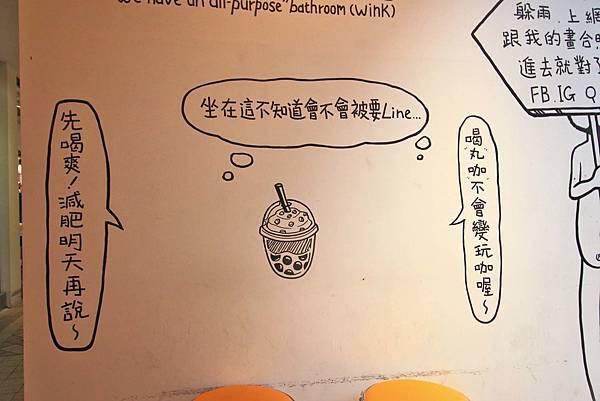 We have an all-purpose" bathroom (Wink)
躲雨.上網
跟我的畫合照
進去就對了
FB.IG Q
坐在這不知道會不會被要Line...
先喝爽!減肥明天再說~
喝丸咖不會變玩咖喔~